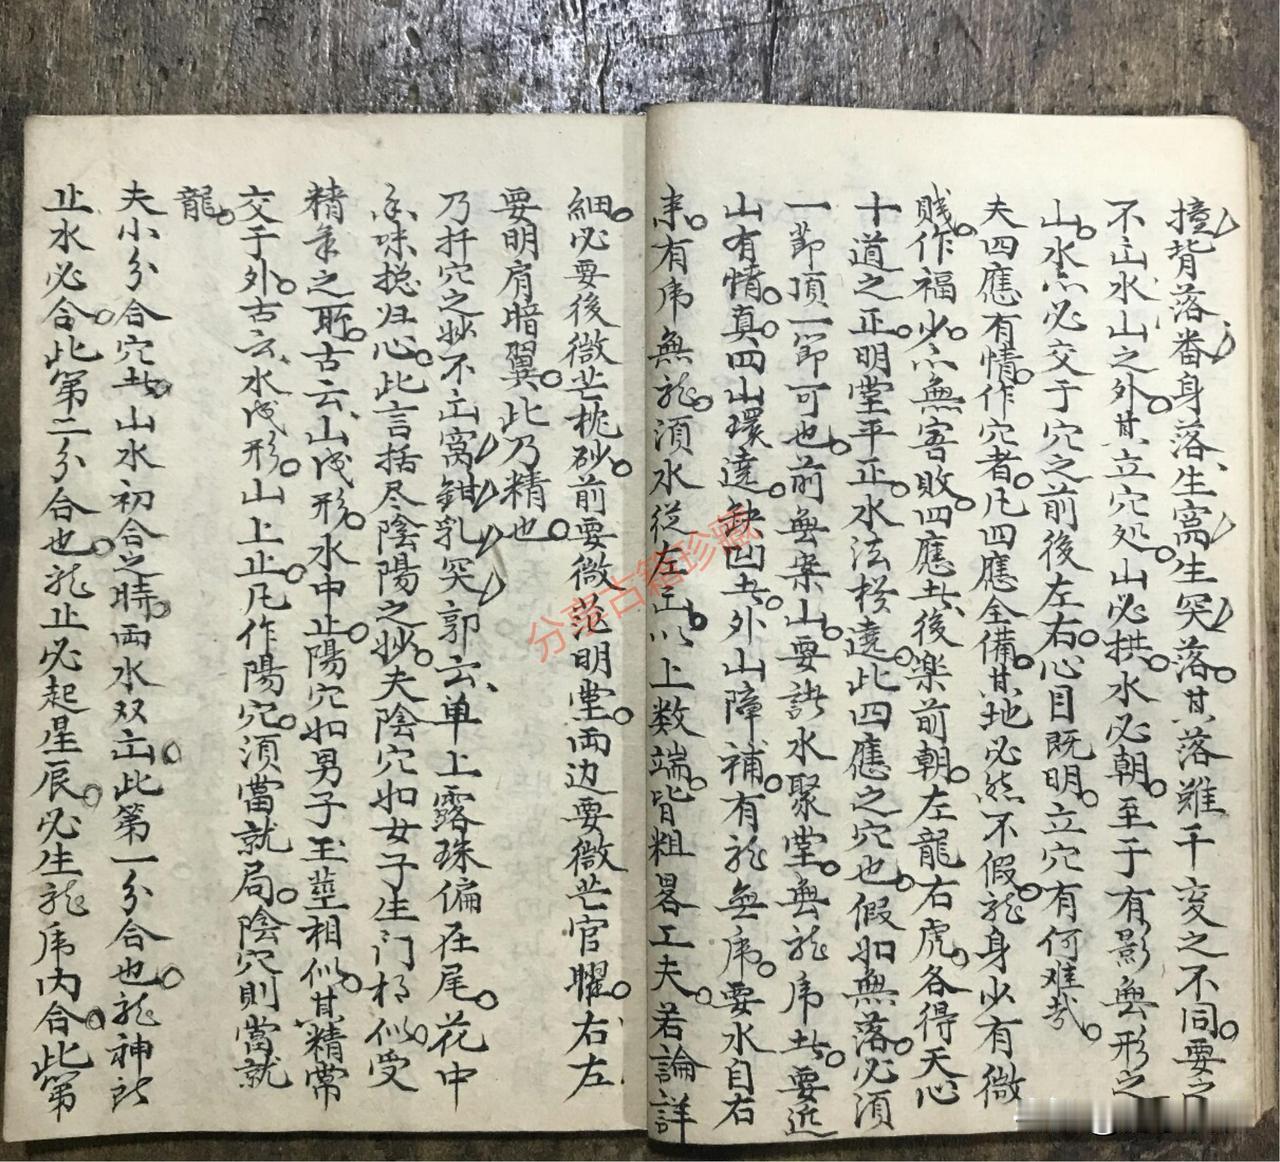 撞背落番身落生窩生突落其落雖千変之不同要之
不出水山之外其立穴処山必拱水必朝至于有影無形之
山水亦必交于穴之前後左右心目既明立穴有何难哉
夫四應有情作穴者凡四應全備其地必然不假龍身少有微
賤作福少亦無害敗四應者後楽前朝左龍右虎各得天心
十道之正明堂平正水法横遶此四應之穴也假如無落必須
一節頂一節可也前無案山要訣水聚堂無龍虎者要近
山有情真四山環遶缺凹者外山障補有龍無虎要水自右
来有虎無龍須水從左出以上数端皆粗畧工夫若論詳
細必要後微芒枕砂前要微茫明堂両边要微芒官曜右左
要明肩暗翼此乃精也
乃扦穴之妙不出窩鉗乳突郭云单上露珠偏在尾花中
香味揔归心此言括尽陰陽之妙夫陰穴如女子生门相似受
精氣之所古云山成形水中止陽穴如男子玉莖相似其精常
交于外古云水成形山上止凡作陽穴須當就局陰穴則當就
龍
夫小分合穴者山水初合之時両水双出此第一分合也龍神所
止水必合此第二分合也龍止必起星辰必生龍虎内合此第
分享古籍珍藏